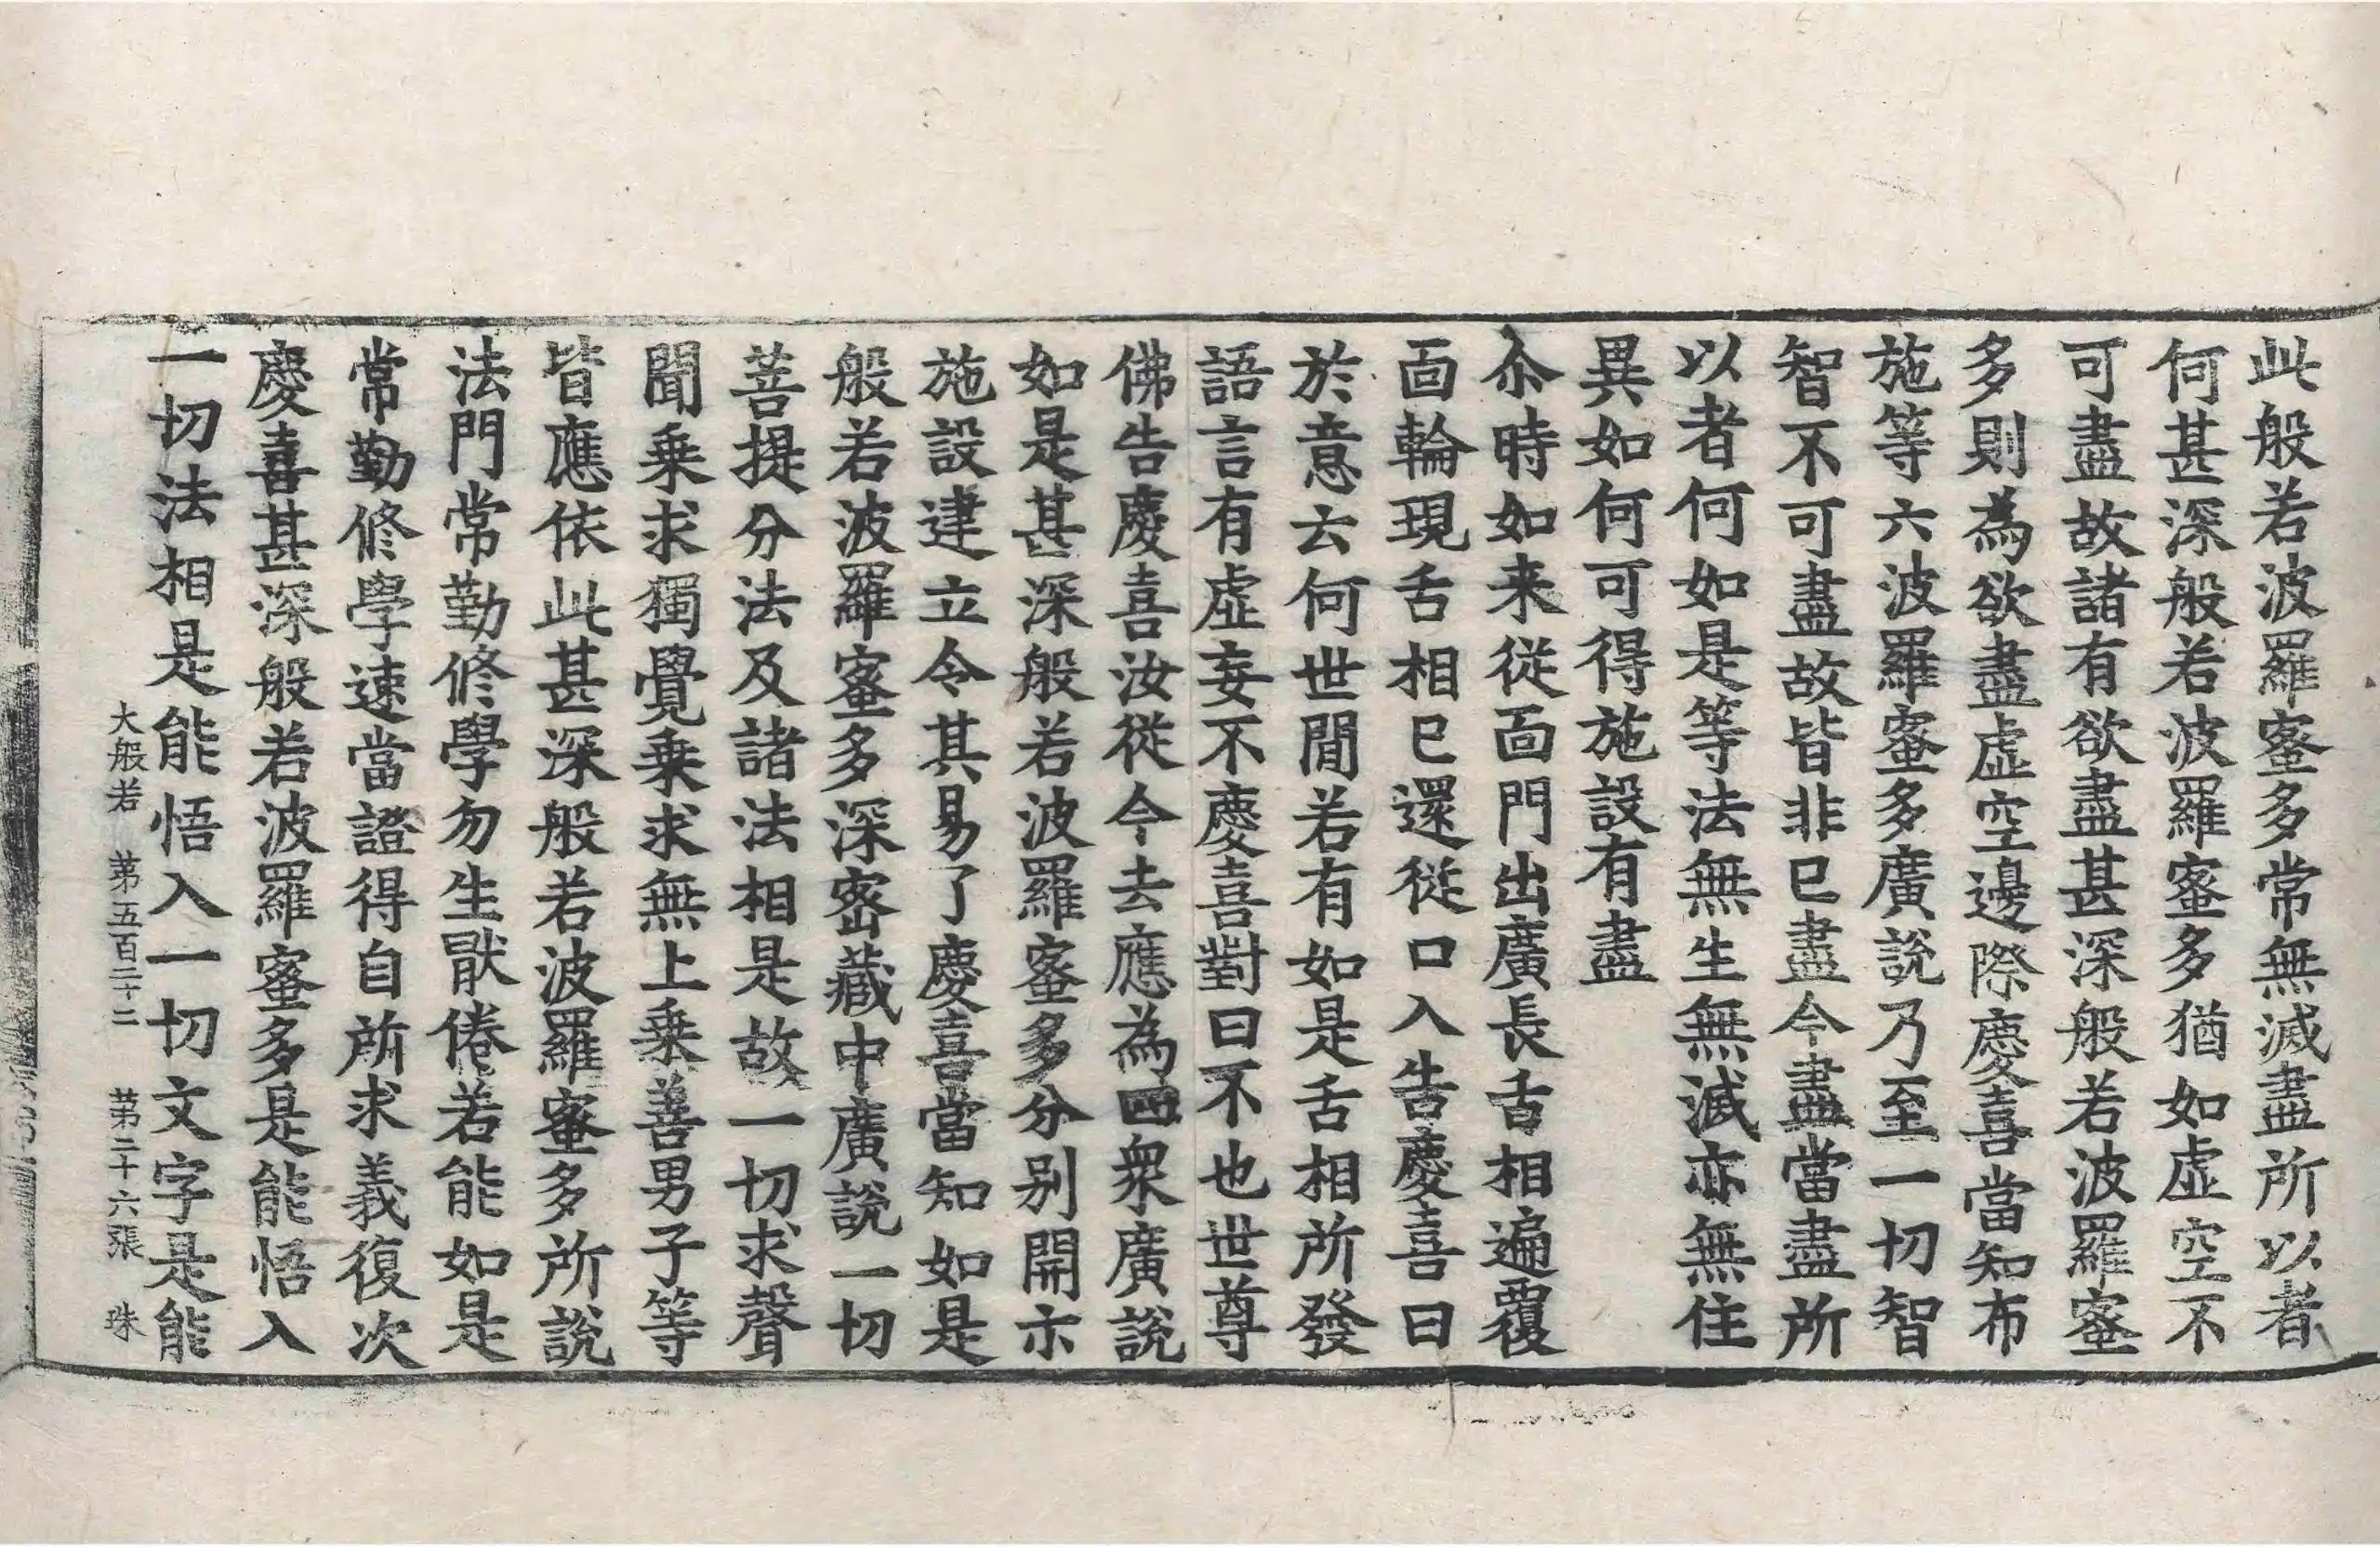 此般若波羅蜜多常無滅盡所以者
何甚深般若波羅蜜多猶如虛空不
可盡故諸有欲盡甚深般若波羅蜜
多則為欲盡虛空邊際慶喜當知布
施等六波羅蜜多廣說乃至一切智
智不可盡故皆非已盡今盡當盡所
以者何如是等法無生無滅亦無住
異如何可得施設有盡
尒時如来從面門出廣長舌相遍覆
面輪現舌相已還從口入告慶喜曰
於意云何世閒若有如是舌相所發
語言有虛妄不慶喜對曰不也世尊
佛告慶喜汝從今去應為四衆廣說
如是甚深般若波羅蜜多分別開示
施設建立令其易了慶喜當知如是
般若波羅蜜多深密藏中廣說一切
菩提分法及諸法相是故一切求聲
聞乗求獨覺乗求無上乗善男子等
皆應依此甚深般若波羅蜜多所說
法門常勤修學勿生猒倦若能如是
常勤修學速當證得自所求義復次
慶喜甚深般若波羅蜜多是能悟入
一切法相是能悟入一切文字是能
大般若 第五百二十二 第二十六張 珠